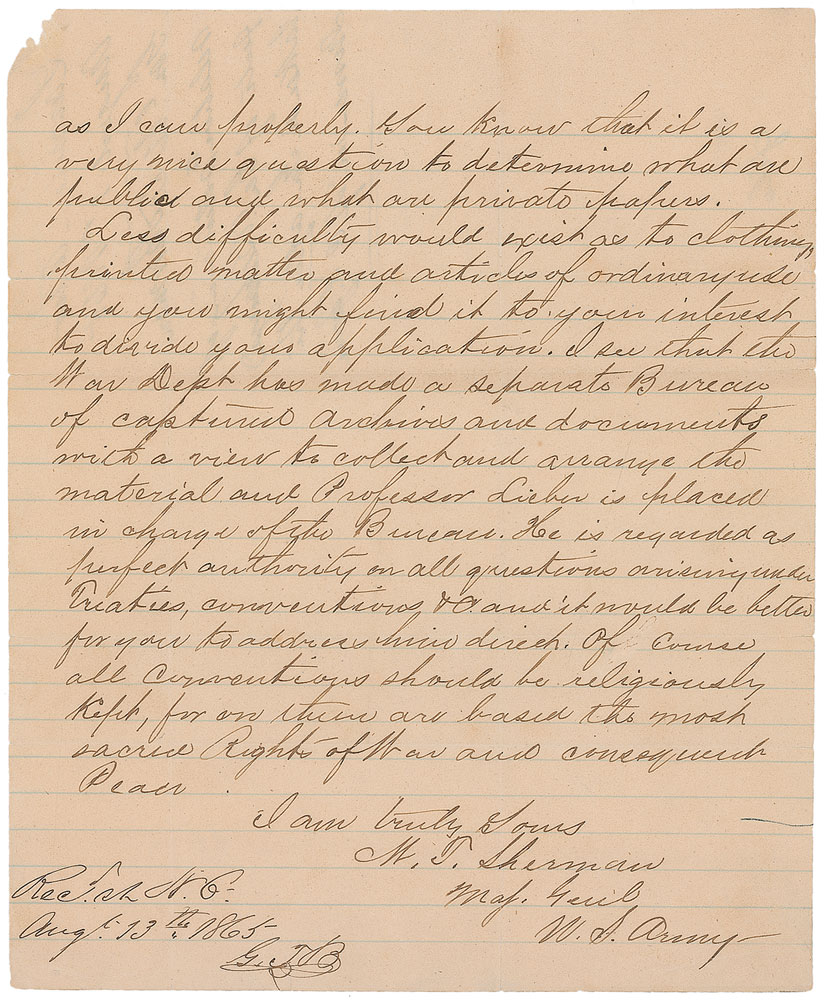 as I can properly. You know that it is a
very nice question to determine what are
public and what are private papers.
Less difficulty would exist as to clothing,
printed matter and articles of ordinary use
and you might find it to your interest
to divide your application. I see that the
War Dept has made a separate Bureau
of captured Archives and documents
with a view to collect and arrange the
material and Professor Lieber is placed
in charge of the Bureau. He is regarded as
perfect authority on all questions arising under
Treaties, conventions &c. and it would be better
for you to address him direct. Of course
all Conventions should be religiously
kept, for on them are based the most
sacred Rights of War and consequent
Peace
I am truly Yours
W. T. Sherman
Maj. Genl
U. S. Army
N. C.
Augt. 13th 1865
G. T. B